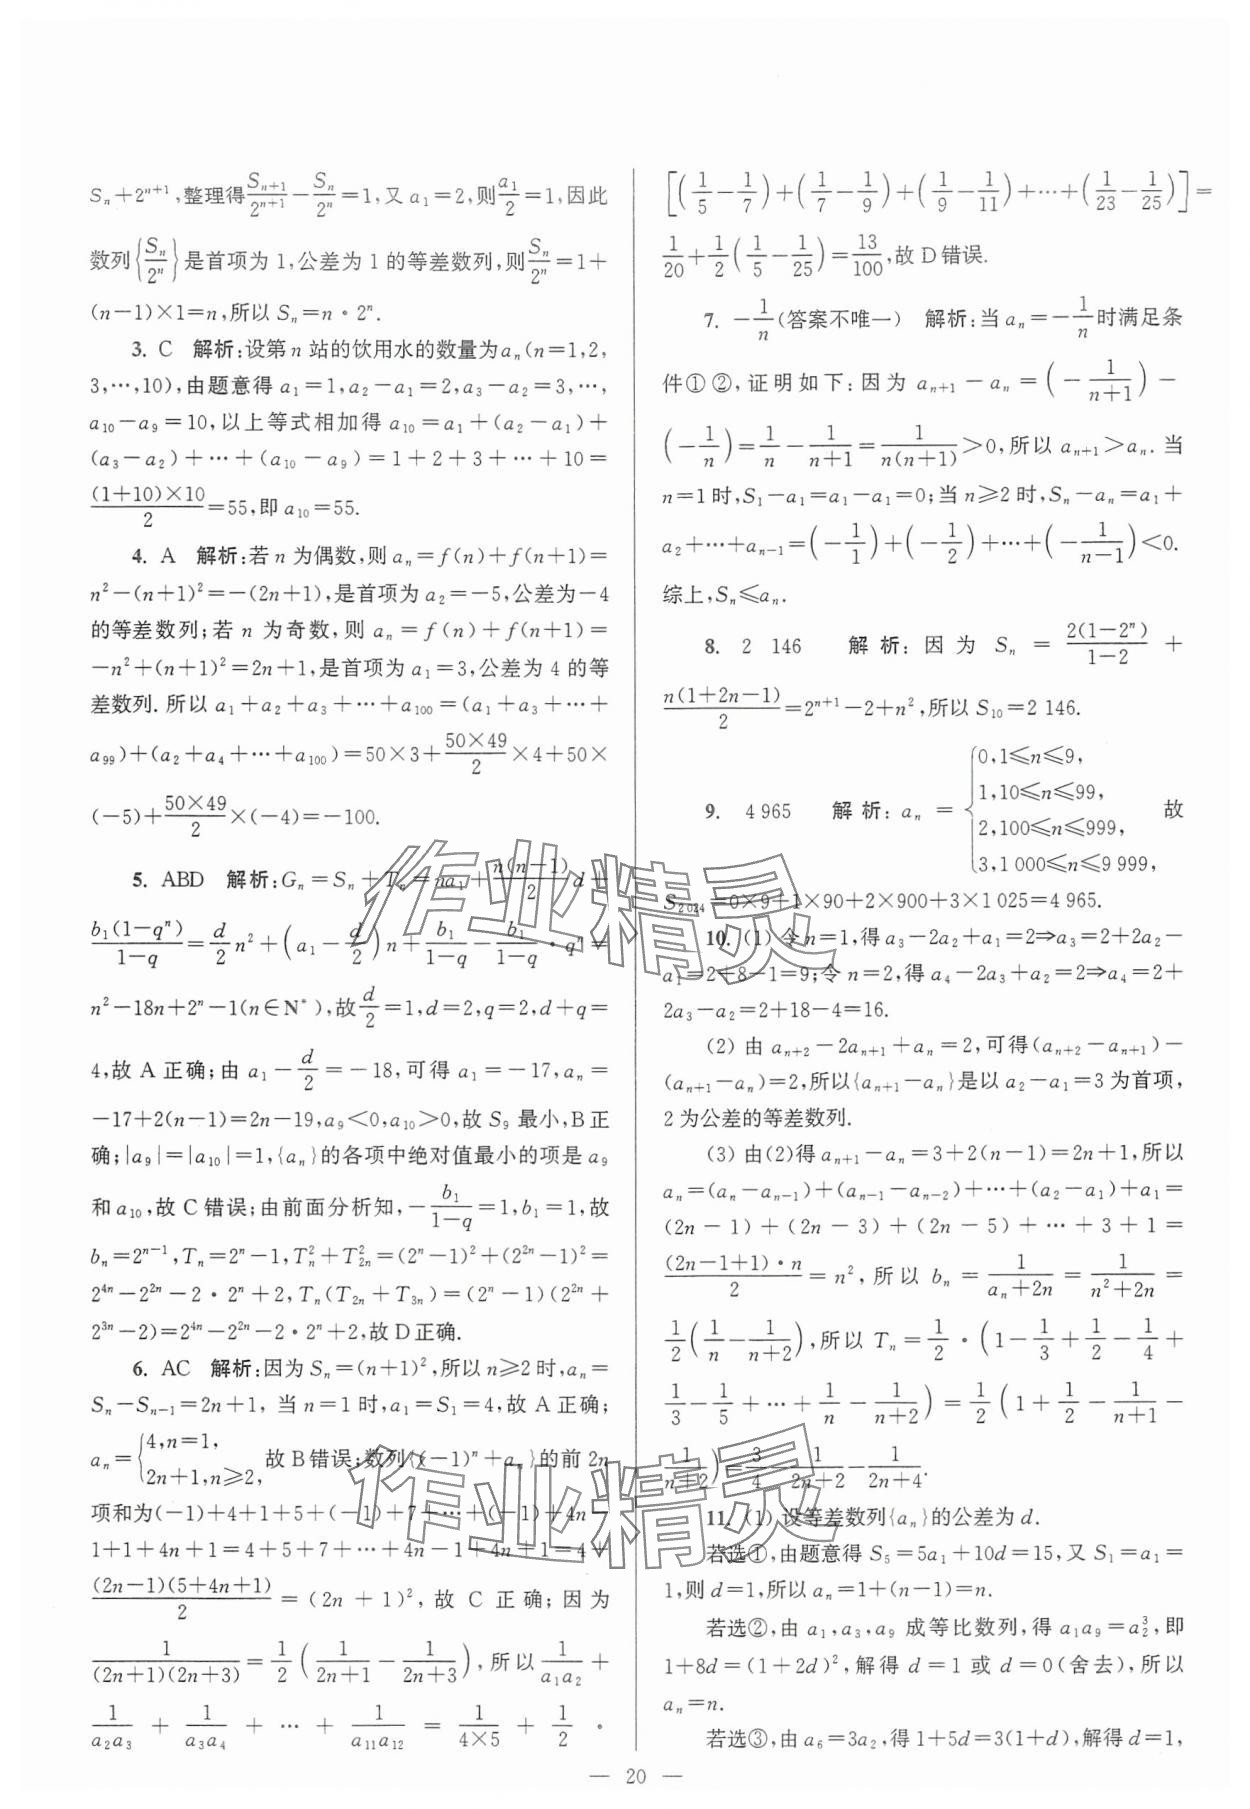 Sₙ+2ⁿ⁺¹,整理得Sₙ₊₁/2ⁿ⁺¹−Sₙ/2ⁿ=1,又 a₁=2,则a₁/2=1,因此
数列{Sₙ/2ⁿ}是首项为 1,公差为 1 的等差数列,则Sₙ/2ⁿ=1+
(n−1)×1=n,所以 Sₙ=n·2ⁿ.
3. C 解析:设第 n 站的饮用水的数量为aₙ(n=1,2,
3,…,10),由题意得 a₁=1,a₂−a₁=2,a₃−a₂=3,…,
a₁₀−a₉=10,以上等式相加得 a₁₀=a₁+(a₂−a₁)+
(a₃−a₂)+…+(a₁₀−a₉)=1+2+3+…+10=
(1+10)×10/2=55,即 a₁₀=55.
4. A 解析:若 n 为偶数,则 aₙ=f(n)+f(n+1)=
n²−(n+1)²=−(2n+1),是首项为 a₂=−5,公差为−4
的等差数列;若 n 为奇数,则 aₙ=f(n)+f(n+1)=
−n²+(n+1)²=2n+1,是首项为 a₁=3,公差为 4 的等
差数列.所以 a₁+a₂+a₃+…+a₁₀₀=(a₁+a₃+…+
a₉₉)+(a₂+a₄+…+a₁₀₀)=50×3+50×49/2×4+50×
(−5)+50×49/2×(−4)=−100.
5. ABD 解析:Gₙ=Sₙ+Tₙ=na₁+n(n−1)/2 d+
b₁(1−qⁿ)/1−q=d/2 n²+(a₁−d/2)n+b₁/1−q−b₁/1−q·qⁿ=
n²−18n+2ⁿ−1(n∈N*),故d/2=1,d=2,q=2,d+q=
4,故 A 正确;由 a₁−d/2=−18,可得 a₁=−17,aₙ=
−17+2(n−1)=2n−19,a₉<0,a₁₀>0,故 S₉ 最小,B正
确;|a₉|=|a₁₀|=1,{aₙ}的各项中绝对值最小的项是 a₉
和 a₁₀,故 C 错误;由前面分析知,−b₁/1−q=1,b₁=1,故
bₙ=2ⁿ⁻¹,Tₙ=2ⁿ−1,Tₙ²+T₂ₙ²=(2ⁿ−1)²+(2²ⁿ−1)²=
2⁴ⁿ−2²ⁿ−2·2ⁿ+2,Tₙ(T₂ₙ+T₃ₙ)=(2ⁿ−1)(2²ⁿ+
2³ⁿ−2)=2⁴ⁿ−2²ⁿ−2·2ⁿ+2,故D正确.
6. AC 解析:因为 Sₙ=(n+1)²,所以 n≥2 时,aₙ=
Sₙ−Sₙ₋₁=2n+1,当 n=1 时,a₁=S₁=4,故 A 正确;
aₙ={4,n=1, 2n+1,n≥2, 故 B 错误;数列{(−1)ⁿ+aₙ}的前 2n
项和为(−1)+4+1+5+(−1)+7+…+(−1)+4n−
1+1+4n+1=4+5+7+…+4n−1+4n+1=4+
(2n−1)(5+4n+1)/2=(2n+1)²,故 C 正确;因为
1/(2n+1)(2n+3)=1/2(1/2n+1−1/2n+3),所以1/a₁a₂+
1/a₂a₃+1/a₃a₄+…+1/a₁₁a₁₂=1/4×5+1/2·
[(1/5−1/7)+(1/7−1/9)+(1/9−1/11)+…+(1/23−1/25)]=
1/20+1/2(1/5−1/25)=13/100,故 D 错误.
7. −1/n(答案不唯一) 解析:当 aₙ=−1/n时满足条
件①②,证明如下:因为 aₙ₊₁−aₙ=(−1/n+1)−
(−1/n)=1/n−1/n+1=1/n(n+1)>0,所以 aₙ₊₁>aₙ.当
n=1时,S₁−a₁=a₁−a₁=0;当 n≥2 时,Sₙ−aₙ=a₁+
a₂+…+aₙ₋₁=(−1/1)+(−1/2)+…+(−1/n−1)<0.
综上,Sₙ≤aₙ.
8. 2 146 解析:因为 Sₙ=2(1−2ⁿ)/1−2+
n(1+2n−1)/2=2ⁿ⁺¹−2+n²,所以 S₁₀=2 146.
9. 4 965 解析:aₙ={0,1≤n≤9, 1,10≤n≤99, 2,100≤n≤999, 3,1 000≤n≤9 999, 故
S₂₀₂₄=0×9+1×90+2×900+3×1 025=4 965.
10. (1) 令 n=1,得 a₃−2a₂+a₁=2⇒a₃=2+2a₂−
a₁=2+8−1=9;令 n=2,得 a₄−2a₃+a₂=2⇒a₄=2+
2a₃−a₂=2+18−4=16.
(2) 由 aₙ₊₂−2aₙ₊₁+aₙ=2,可得(aₙ₊₂−aₙ₊₁)−
(aₙ₊₁−aₙ)=2,所以{aₙ₊₁−aₙ}是以 a₂−a₁=3 为首项,
2 为公差的等差数列.
(3) 由(2)得 aₙ₊₁−aₙ=3+2(n−1)=2n+1,所以
aₙ=(aₙ−aₙ₋₁)+(aₙ₋₁−aₙ₋₂)+…+(a₂−a₁)+a₁=
(2n−1)+(2n−3)+(2n−5)+…+3+1=
(2n−1+1)·n/2=n²,所以 bₙ=1/aₙ+2n=1/n²+2n=
1/2(1/n−1/n+2),所以 Tₙ=1/2·(1−1/3+1/2−1/4+
1/3−1/5+…+1/n−1/n+2)=1/2(1+1/2−1/n+1−
1/n+2)=3/4−1/2n+2−1/2n+4.
11. (1) 设等差数列{aₙ}的公差为 d.
若选①,由题意得 S₅=5a₁+10d=15,又 S₁=a₁=
1,则 d=1,所以 aₙ=1+(n−1)=n.
若选②,由 a₁,a₃,a₉ 成等比数列,得 a₁a₉=a₂³,即
1+8d=(1+2d)²,解得 d=1 或 d=0(舍去),所以
aₙ=n.
若选③,由 a₆=3a₂,得 1+5d=3(1+d),解得 d=1,
— 20 —
作业精灵
作业精灵